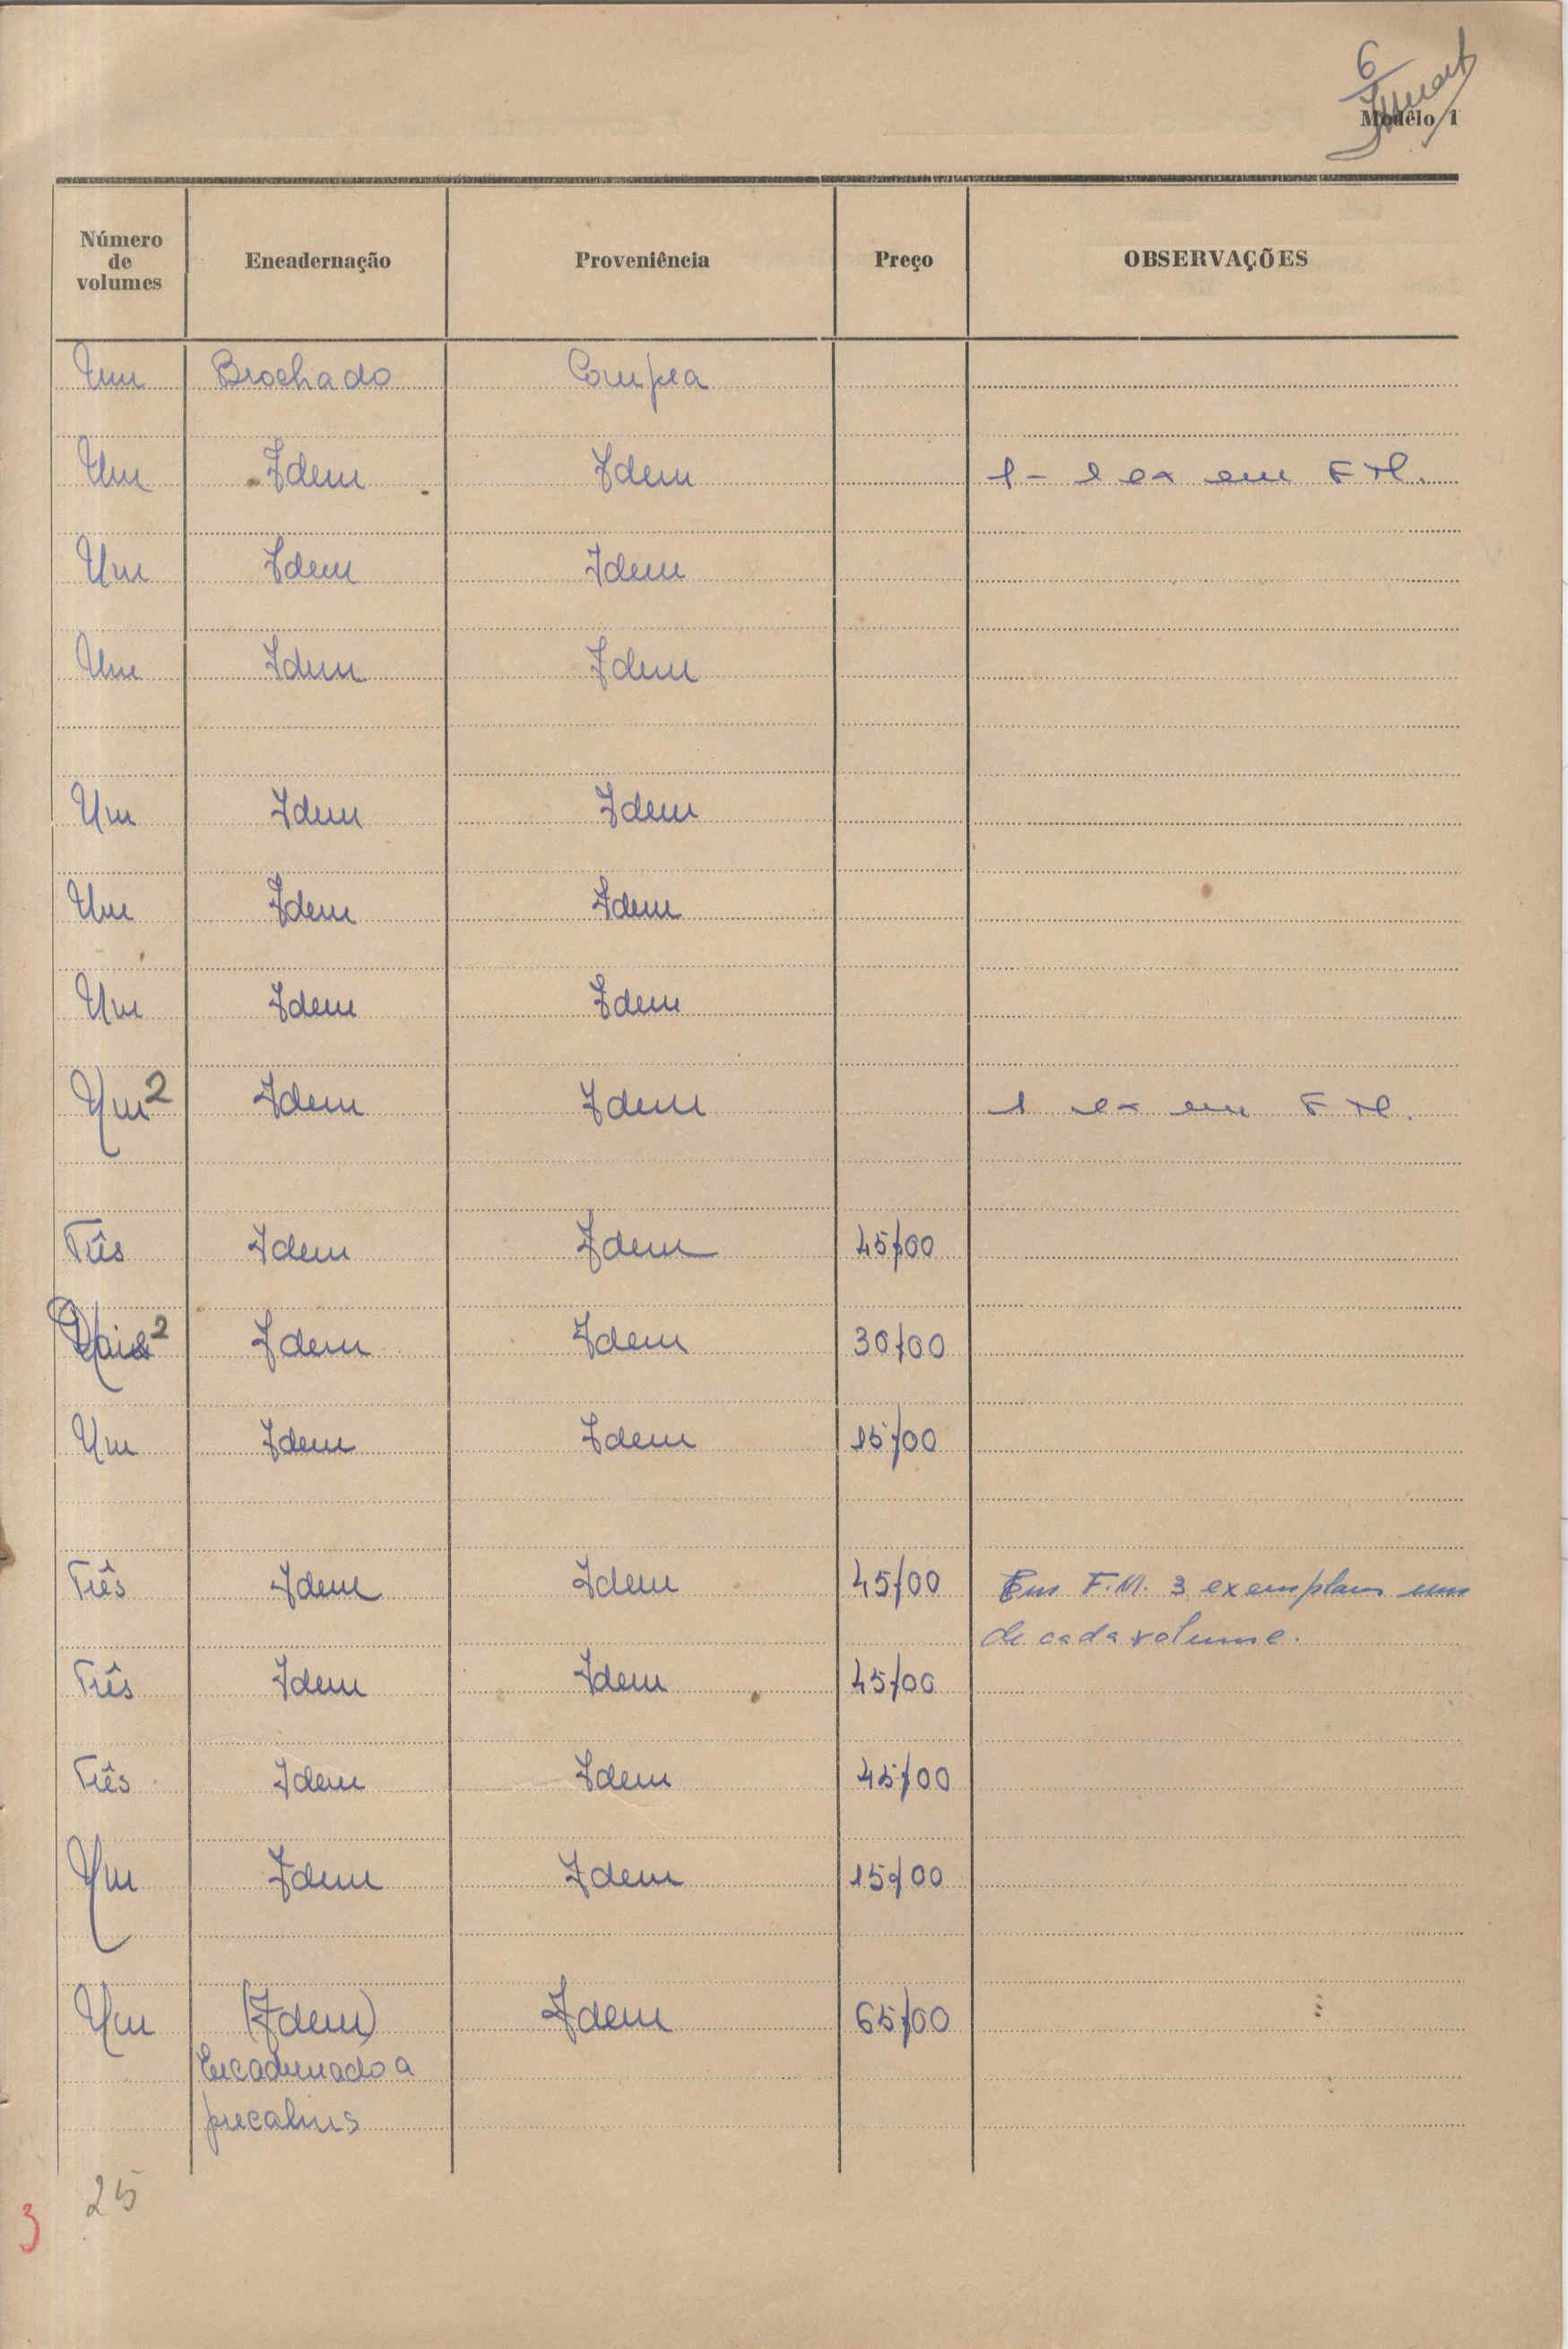 6
Modêlo 1
Número de volumes Encadernação Proveniência Preço OBSERVAÇÕES
Um Brochado Compra
Um Idem Idem 1 - 1 ex em F M.
Um Idem Idem
Um Idem Idem
Um Idem Idem
Um Idem Idem
Um Idem Idem
Um 2 Idem Idem 1 ex em F M.
Três Idem Idem 45$00
2 Idem Idem 30$00
Um Idem Idem 15$00
Três Idem Idem 45$00 Em F.M. 3 exemplares um
de cada volume.
Três Idem Idem 45$00
Três Idem Idem 45$00
Um Idem Idem 15$00
Um (Idem) Idem 65$00
Encadernado a
precalins
25
3